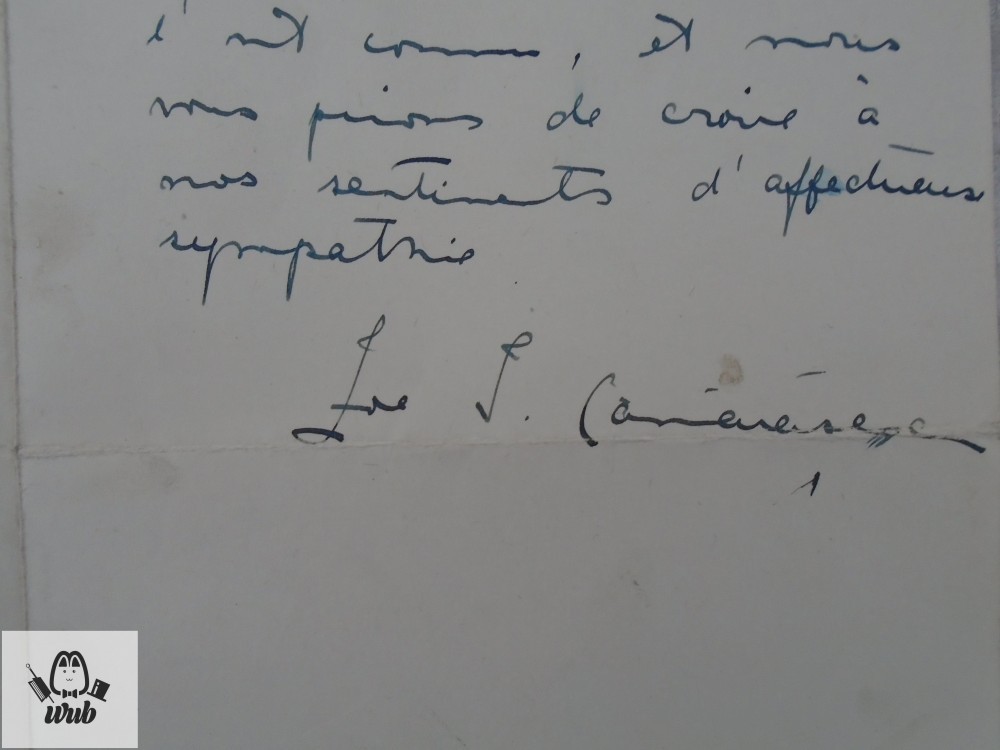 l'ont connu, et nous
vous prions de croire à
nos sentiments d'affectueuse
sympathie
S.
wub